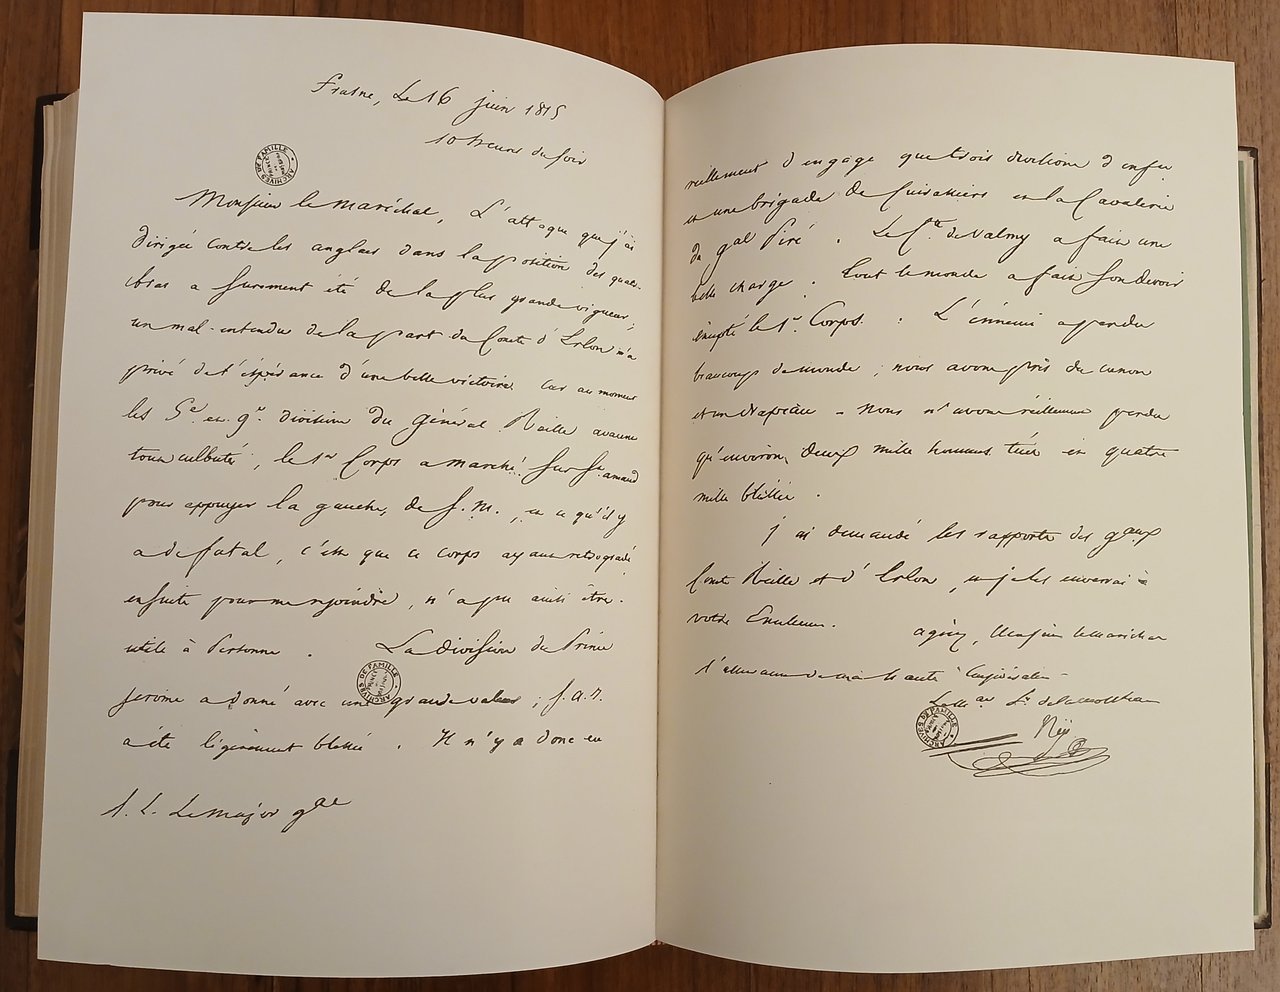 Frasne, Le 16 juin 1815
10 heures du soir
ARCHIVES DE FAMILLE
Monsieur le maréchal, L'attaque que j'ai
dirigée contre les anglais dans la position des quatre-
bras a surement été de la plus grande vigueur;
un mal-entendu de la part du Comte d'Erlon m'a
privé de l'espérance d'une belle victoire. Car au moment
les 5e. et 9e. divisions du général Reille avaient
tout culbuté, le 1er Corps a marché sur St. amand
pour appuyer la gauche, de S. M., et ce qu'il y
a de fatal, c'est que ce corps ayant retrogradé
ensuite pour me rejoindre, n'a pu ainsi être
utile à Personne. La division du Prince
ARCHIVES DE FAMILLE
jerome a donné avec une grande valeur; S. a. R.
a été légèrement blessé. Il n'y a donc eu
S. E. Le major gal
réellement d'engagé que trois divisions d'infie
et une brigade de Cuirassiers et la Cavalerie
du gal Piré. Le Cte. de Valmy a fait une
belle charge. tout le monde a fait son devoir
excepté le 1er. Corps. L'ennemi a perdu
beaucoup de monde; nous avons pris du canon
et un drapeau - nous n'avons réellement perdu
qu'environ deux mille hommes tués et quatre
mille blessés.
j'ai demandé les rapports des gaux
Comte Reille et d'Erlon, et je les enverrai à
votre Excellence.
agréez, Monsieur le maréchal
l'assurance de ma haute Considération
Le Mal Pce de la moskowa
Ney
ARCHIVES DE FAMILLE